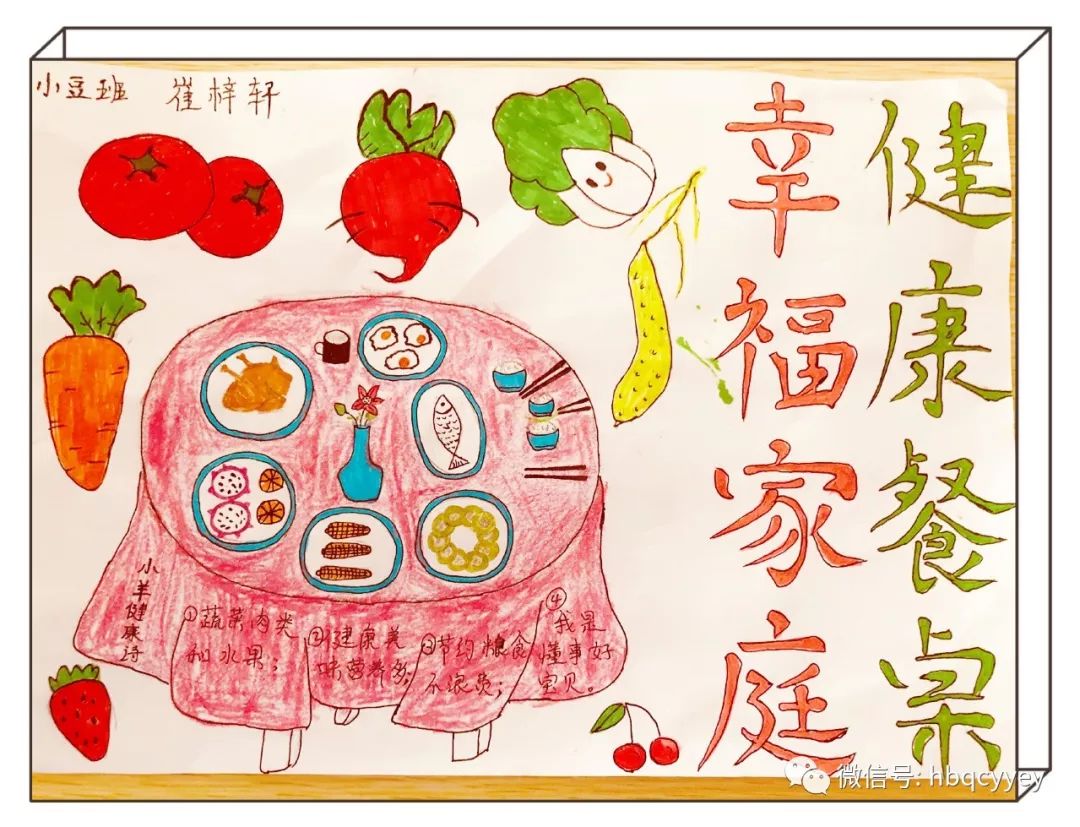 小豆班 崔梓轩
健康餐桌
幸福家庭
小羊健康诗
①蔬菜肉类
和水果；
②健康美
味营养多，
③节约粮食
不浪费；
④
我是
懂事好
宝贝。
微信号: hbqcyyey